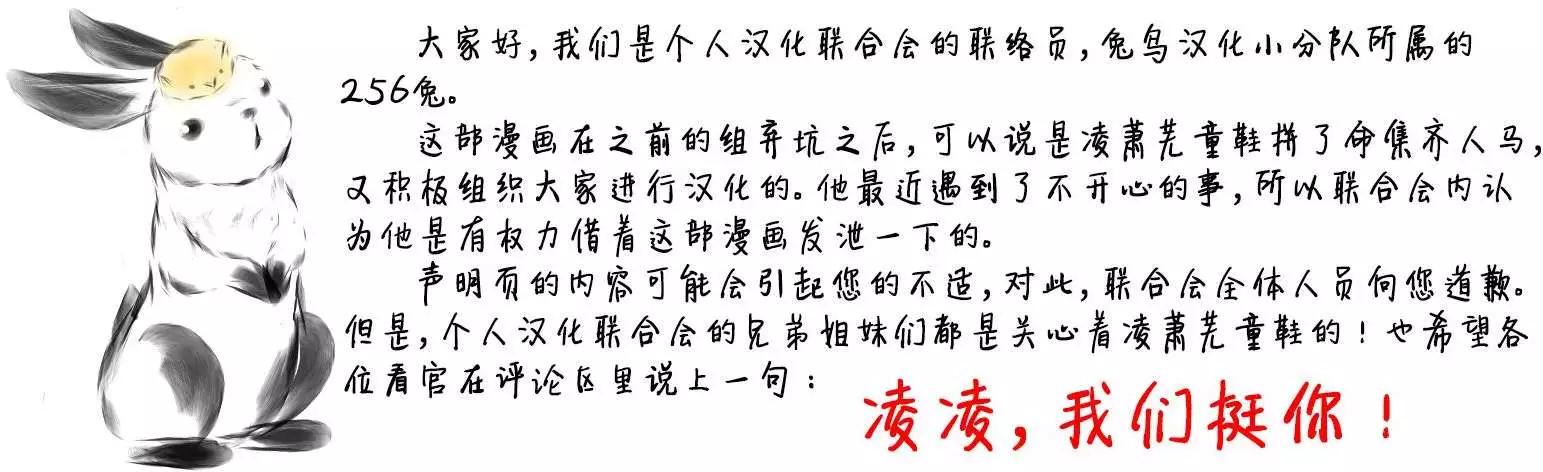 大家好,我们是个人汉化联合会的联络员,兔鸟汉化小分队所属的
256兔。
这部漫画在之前的组弃坑之后,可以说是凌萧芜童鞋拼了命集齐人马,
又积极组织大家进行汉化的。他最近遇到了不开心的事,所以联合会内认
为他是有权力借着这部漫画发泄一下的。
声明页的内容可能会引起您的不适,对此,联合会全体人员向您道歉。
但是,个人汉化联合会的兄弟姐妹们都是关心着凌萧芜童鞋的!也希望各
位看官在评论区里说上一句:
凌凌,我们挺你!